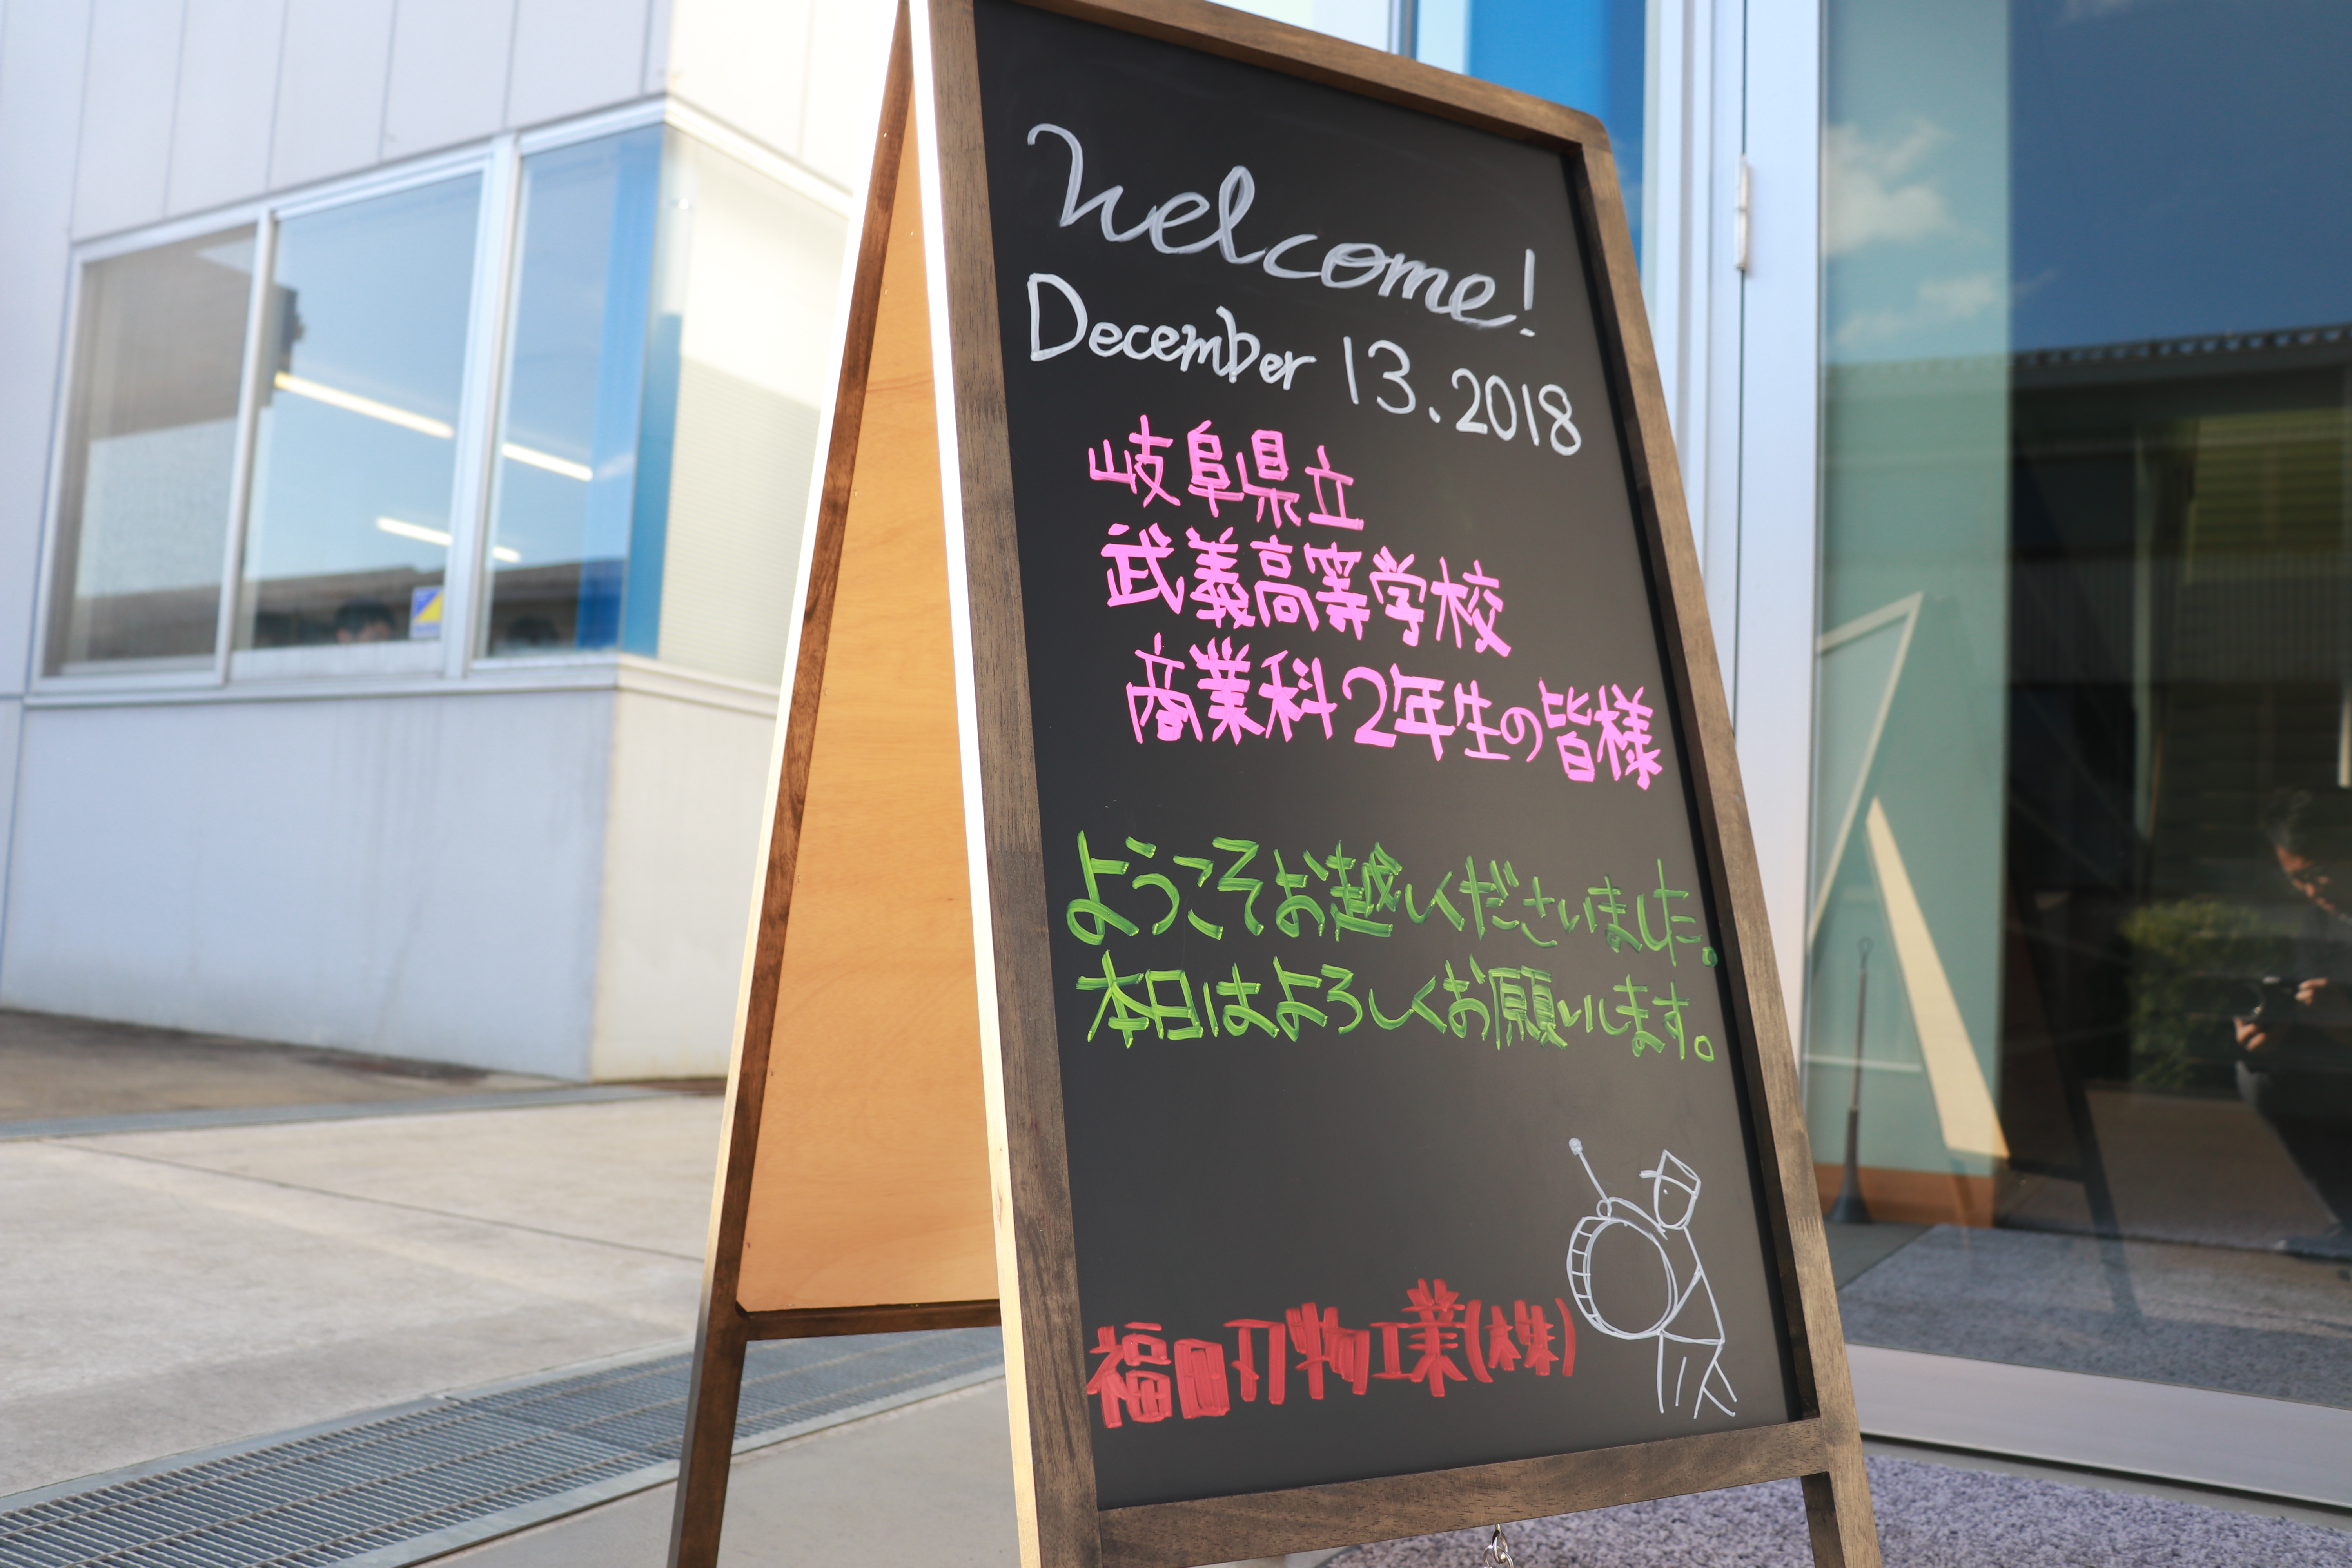 Welcome!
December 13.2018
岐阜県立
武義高等学校
商業科2年生の皆様
ようこそお越しくださいました。
本日はよろしくお願いします。
福田刃物工業(株)